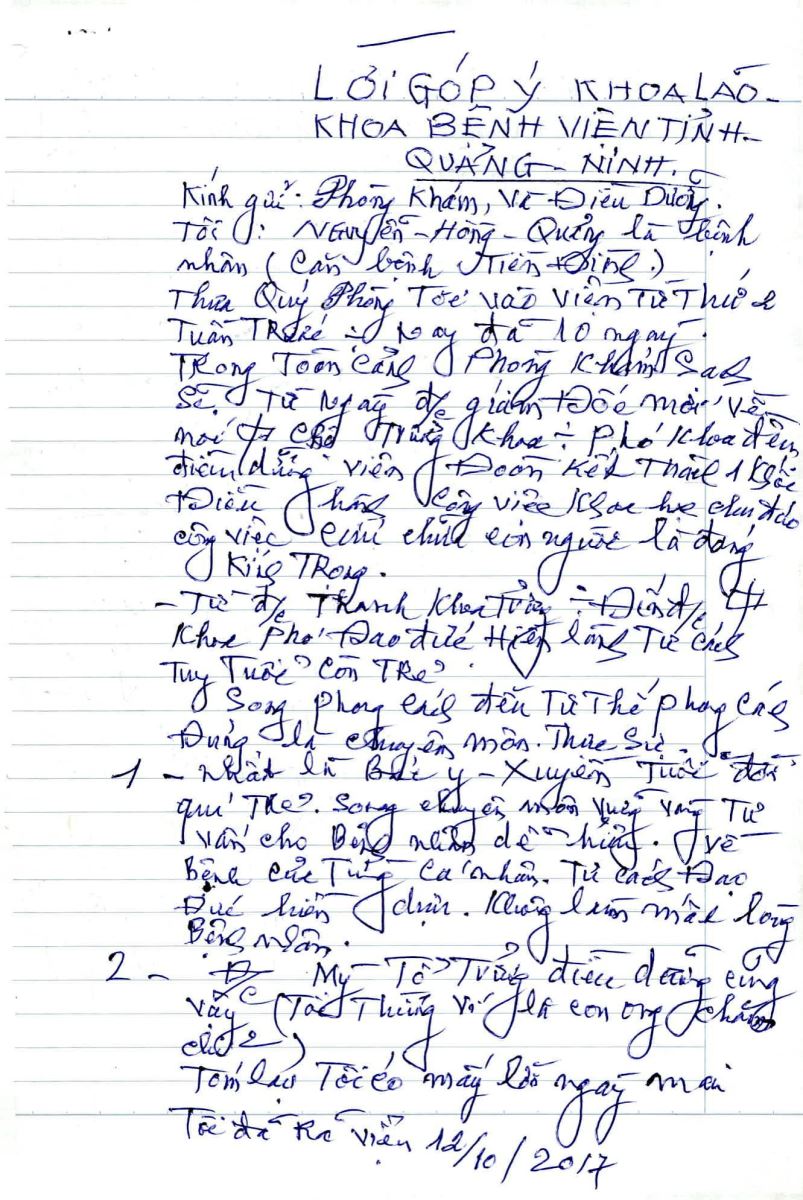 LỜI GÓP Ý KHOA LÃO-
KHOA BỆNH VIỆN TỈNH-
QUẢNG-NINH.
Kính gửi: Phòng Khám, Và Điều Dưỡng.
Tôi: NGuyễn-Hồng-Quảng là bệnh
nhân (Căn bệnh Tiền Đình)
Thưa Quý Phòng Tôi vào viện Từ Thứ 2
Tuần TRước Nay đã 10 ngày.
TRong Toàn Cảnh Phòng Khám Sạch
Sẽ. Từ Ngày đ/c giám Đốc mới Về
nơi Trưởng Khoa Phó Khoa đến
điều dưỡng viên Đoàn Kết Thành 1 Khối
Điều hành Công việc Khoa học chu đáo
công việc Cứu chữa con người là đáng
Kính TRọng.
- Từ đ/c Thanh Khoa Trưởng Đến đ/c
Khoa Phó Đạo đức Hiền lành Tư cách
Tuy Tuổi Còn TRẻ.
Song phong Cách đến Tư Thế phong Cách
Đúng là chuyên môn. Thực Sự.
1 - nhất là Bác y-Xuyến Tuổi đời
quá TRẻ. Song chuyên môn vững vàng Tư
vấn cho Bệnh nhân dễ hiểu. Về
Bệnh của Từng Cá nhân. Tư cách Đạo
Đức hiền dịu. Không làm mất lòng
Bệnh nhân.
2 - Đ/c Mỹ Tổ Trưởng điều dưỡng cũng
vậy (Tôi Thường Ví là con ong chăm
chỉ)
Tóm lại Tôi có mấy lời ngày mai
Tôi đã Ra viện 12/10/2017